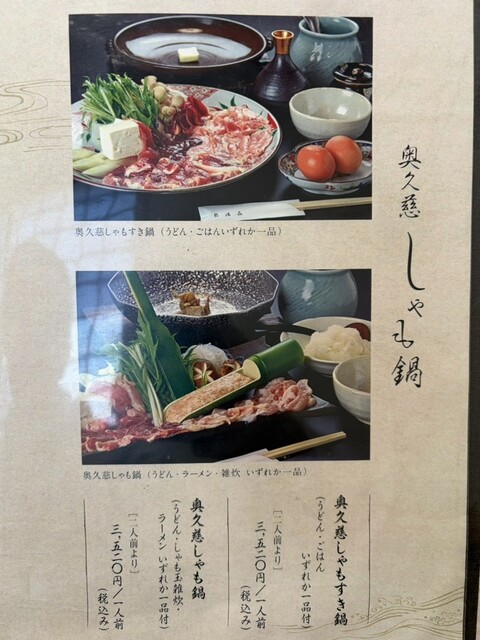 奥久慈しゃも鍋
奥久慈しゃもすき鍋（うどん・ごはんいずれか一品）
奥久慈しゃも鍋（うどん・ラーメン・雑炊 いずれか一品）
奥久慈しゃもすき鍋
（うどん・ごはん
いずれか一品付）
［二人前より］
三、五二〇円／一人前
（税込み）
奥久慈しゃも鍋
（うどん・しゃも玉雑炊・
ラーメン いずれか一品付）
［二人前より］
三、五二〇円／一人前
（税込み）